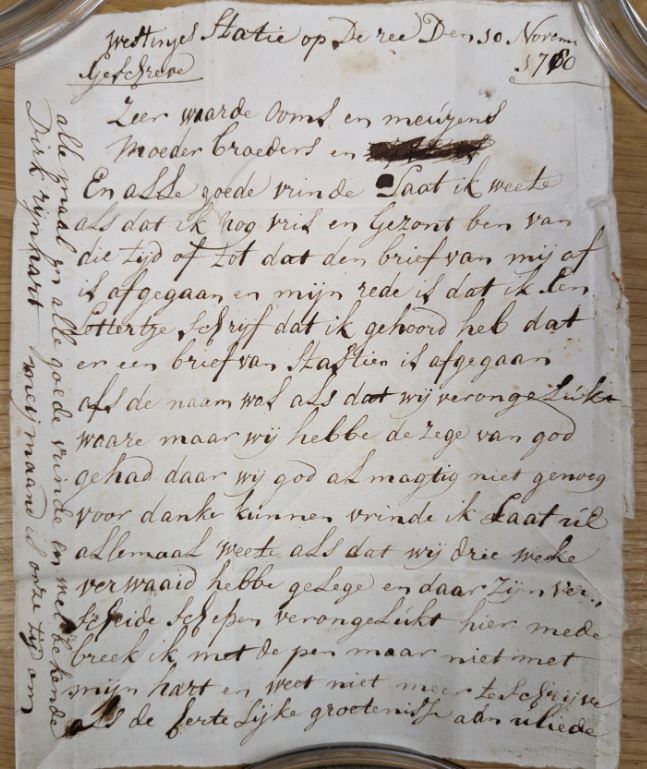 westinjes Statie op De ree Den 10 Novem
Geschreve 1780
Zeer waarde ooms en meuijens
Moeder broeders en
En alle goede vrinde Laat ik weete
als dat ik nog vris en Gezont ben van
die tyd of tot dat den brief van mij af
is afgegaan en mijn rede is dat ik Een
Lettertje schrijf dat ik gehoord heb dat
er een brief van Stastien is afgegaan
als de naam was als dat wij verongelukt
waare maar wij hebbe de zege van god
gehad daar wij god almagtig niet genoeg
voor danke kunnen vrinde ik Laat ul
allemaal weete als dat wij drie weeke
verwaaid hebbe gelege en daar zijn ver
scheide schepen verongelukt hier mede
breek ik met de pen maar niet met
mijn hart en weet niet meer te schrijve
als de herte Lijke groetenisse aan uliede
alle maal en alle goede vrinde en met bekende
Dirk rijnhart meij maand is onze tyd om